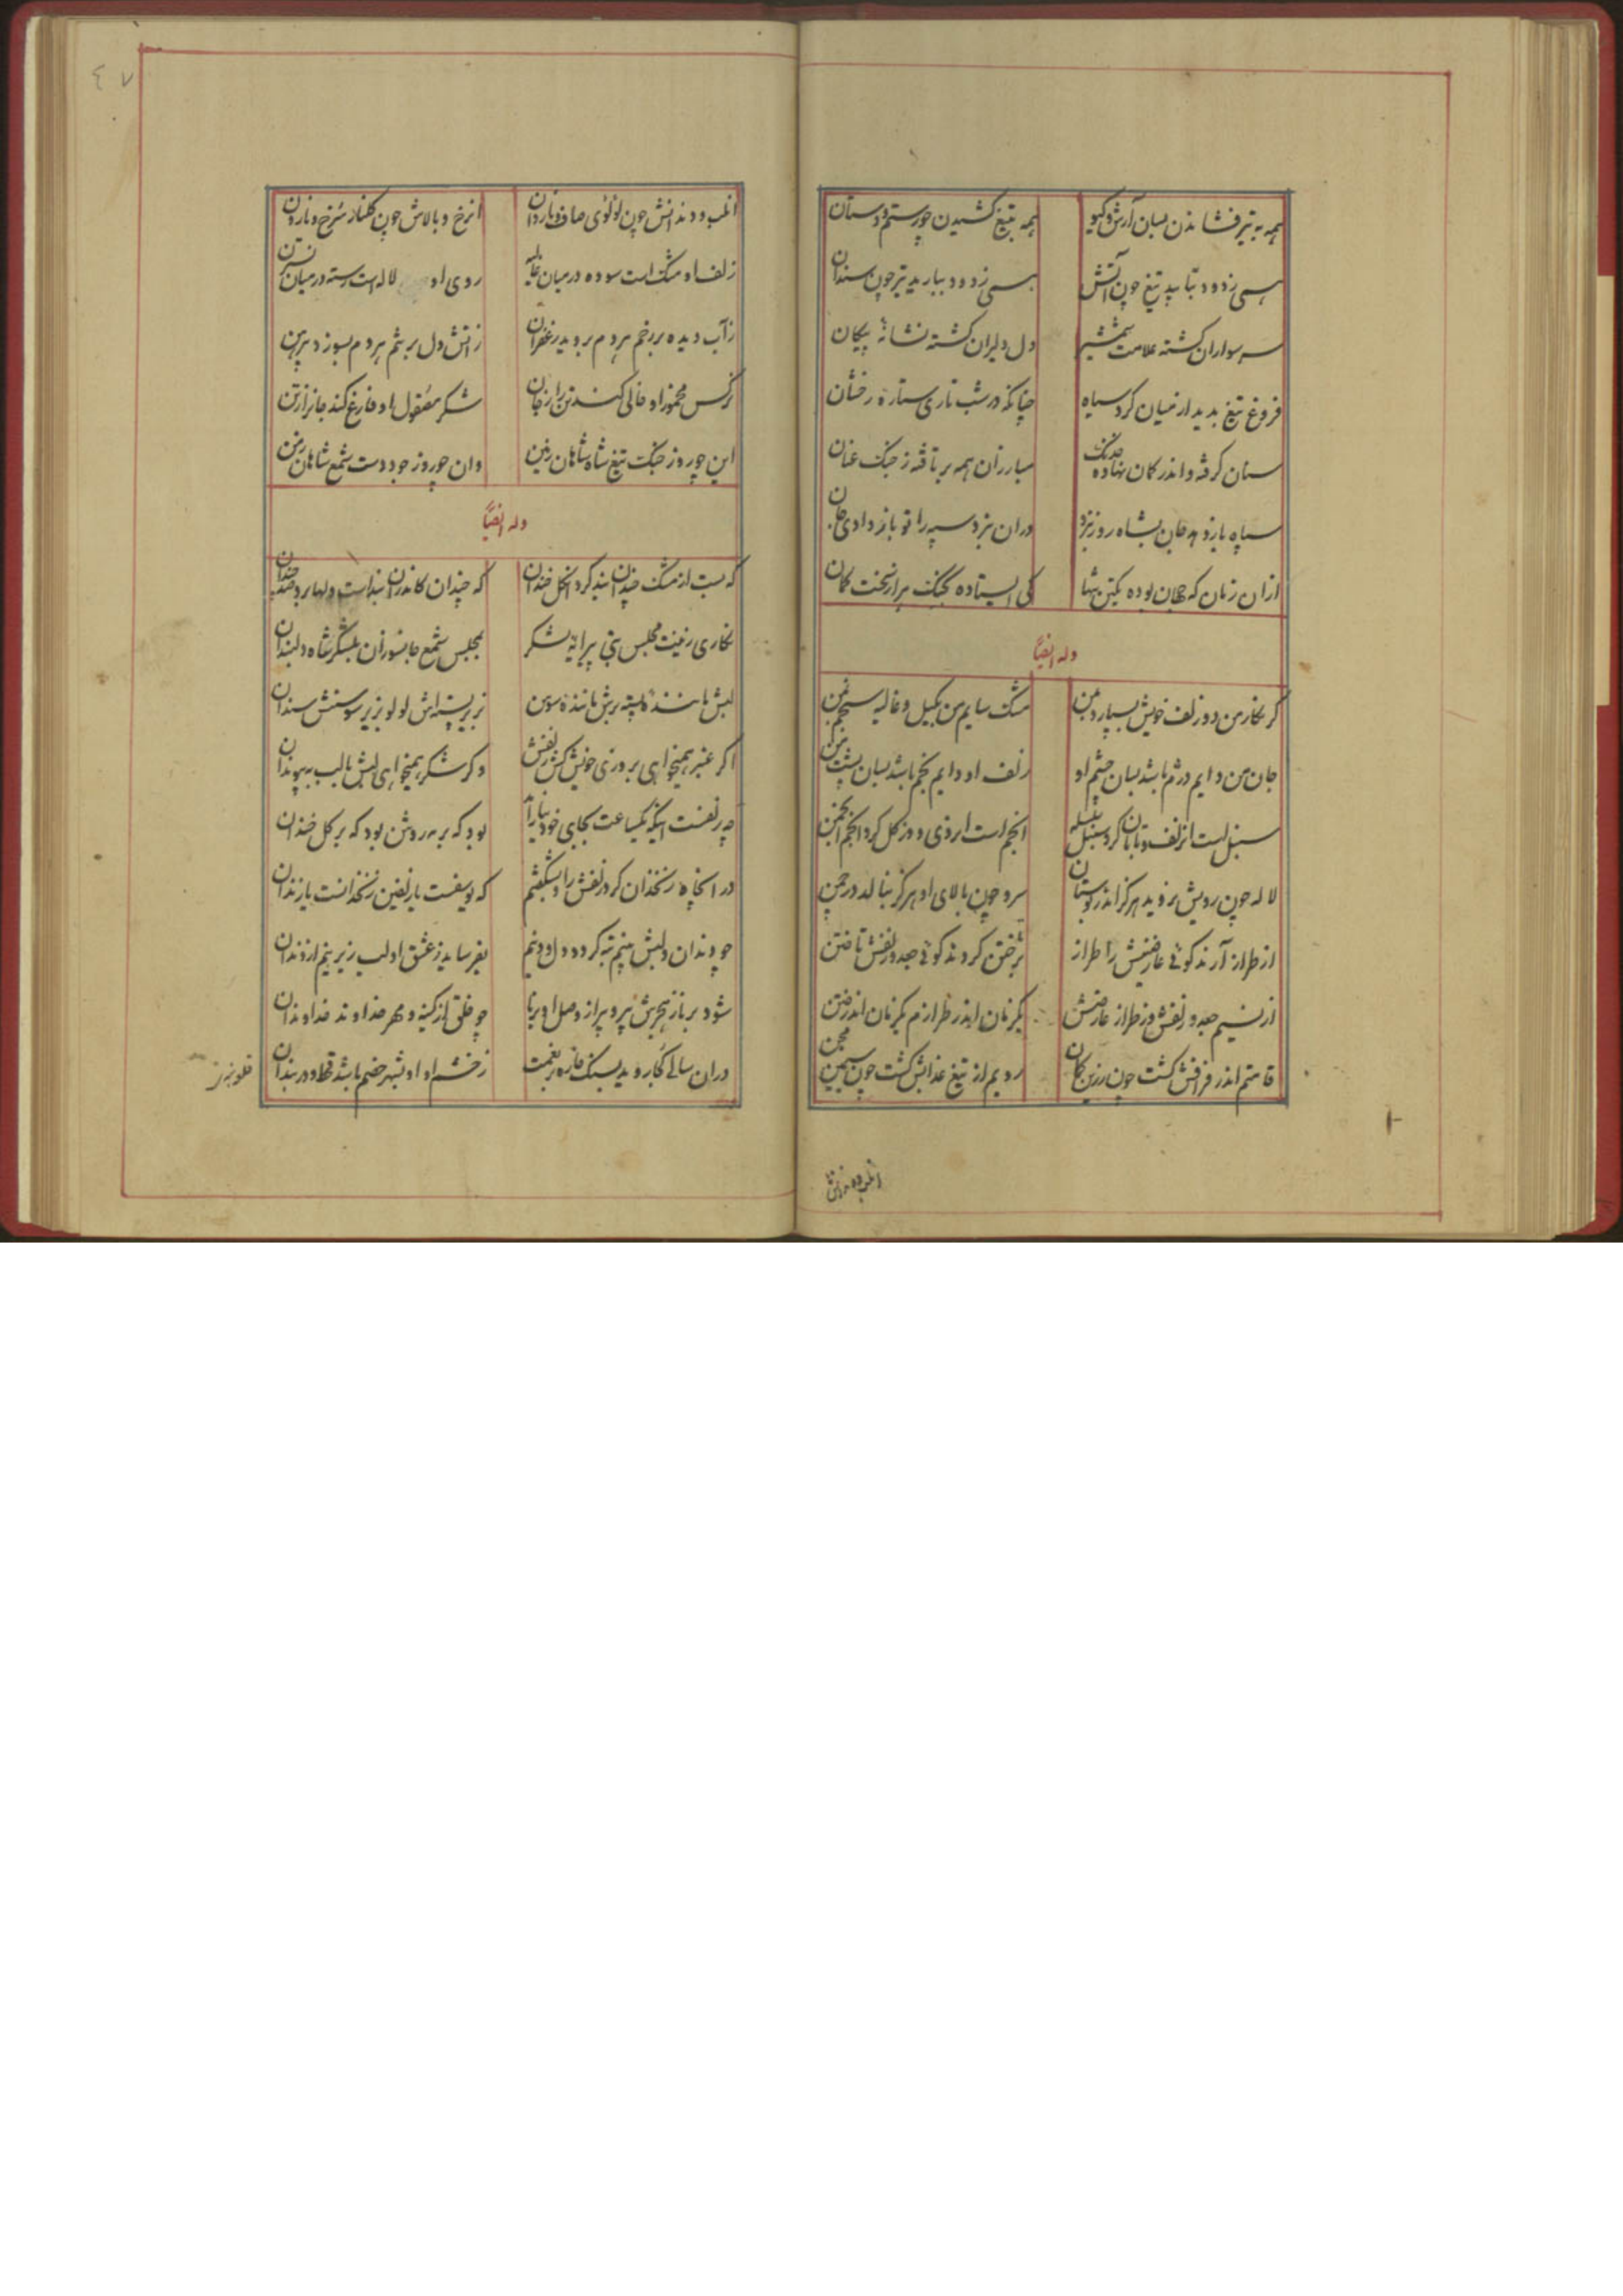 همه به تیر فشاندن بسان آرش و کیو همه بتیغ کشیدن چو رستم دستان
همی زدود بتابید تیغ چون آتش همی زدود ببارید تیر چون سندان
سر سواران کشته علامت شمشیر دل دلیران کشته نشانهٔ پیکان
فروغ تیغ بدیدار از میان کرد سیاه چنانکه در شب تاری ستاره رخشان
سنان کرفته و اندر کمان نهاده خدنک مبارزان همه بر تافته ز جنک عنان
سپاه بشاه روز نبرد دران نبرد سپه را تو باز دادی جان
ازان زمان که جهان بوده یکتن تنها کی ایستاده بجنک هزار سخت کمان
وله ایضاً
کر نکار من دو زلف خویش بسپارد بمن مشک سایم من بکیل و غالیه سنجم بمن
جان من دایم دژم باشد بسان چشم او زلف او دایم بخم باشد بسان پشت من
سنبل است از زلف تابان کرد سنبل سلسله انجم است از روی دو کل کرد انجم انجمن
لاله چون رویش نروید هرکز اندر بوستان سرو چون بالای او هرکز نبالد در چمن
از طراز آرند کوئی عارضش را طراز بر ختن کردند کوئی جعد و زلفش تاختن
از نسیم جعد و زلفش وز طراز عارضش یکزمان اندر طرازم یکزمان اندر ختن
قامتم اندر فراقش کشت چون زرین کمان رویم از تیغ عذابش کشت چون سیمین مجن
از لب و دندانش چون لؤلؤی صاف و ناردان از رخ و بالاش چون کلنار سرخ و نارون
زلف او مشک است سوده در میان غالیه روی او لاله است رسته در میان نسترن
ز آب دیده بر رخم هر دم بروید زعفران ز آتش دل بر تنم هر دم بسوزد پیرهن
نرکس مخمور او خالی کند تن را ز جان شکر معقول او فارغ کند جانرا ز تن
این چو روز جنک تیغ شاه شاهان زمین وان چو روز جود دست شمع شاهان زمن
وله ایضاً
که بست از مشک چندان بند کرد آن کل خندان که چندان کاندران بنداست دلها برد صد چندان
نکاری زینت مجلس بتی پیرایه لشکر بمجلس شمع جانسوزان بلشکر شاه دلبندان
لبش مانندهٔ پسته برش مانندهٔ سوسن بزیر پسته‌اش لولو بزیر سوسنش سندان
اکر عنبر همیخواهی بروزی خویش کش زلفش وکر شکر همیخواهی لبش با لب بپیوندان
چه زلفست اینکه یکساعت بجای خود نیارامد بود که بر مه روشن بود که بر کل خندان
در آنچاه زنخدان کرد زلفش را و بشکفتم که یوسفست یا زلفین زنخدانست یا زندان
چو دندان و لبش بینم تبه کردد دل و دینم بفرساید ز عشق او لب زیرینم از دندان
شود برنا ز هجرش پیر و پیر از وصل او برنا چو خلق از کینه و مهر خداوند خداوندان
دران سالی کجا روید بسنک خاره بر نعمت ز خشم او به شهر خصم باشد قحط و در بندان